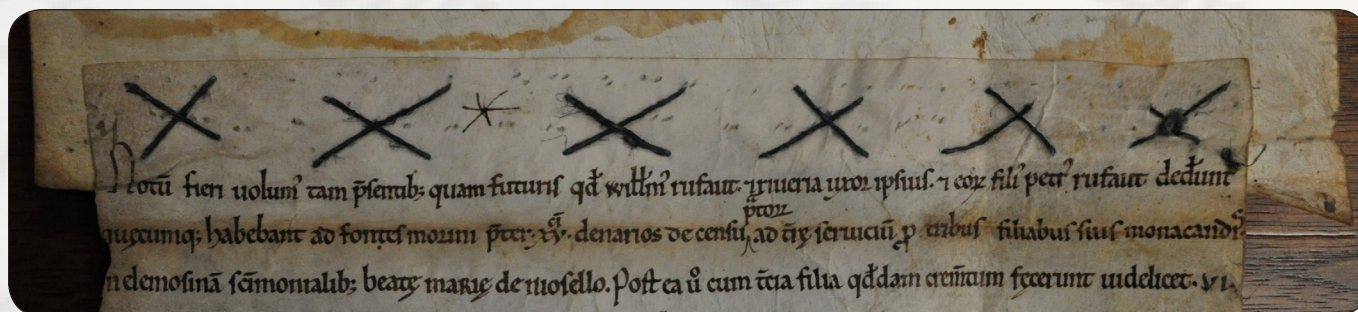 Notū fieri uolum᷒ tam p̄sentib; quam futuris qđ willm᷒ rufaut ⁊ uxor ipsius ⁊ eoꝝ fili᷒ petr᷒ rufaut dedunt
p̄toꝝ
habebant ad fontes morini p̄ter xv denarios de censu ad seruiciū ꝓ tribus filiabus suis monacandis
elemosinā sc̄imonialib; beatę marię de iuosello. Post ea u᷒o cum t̄cia filia qđdam crem̄tum fecerunt uidelicet. vi.